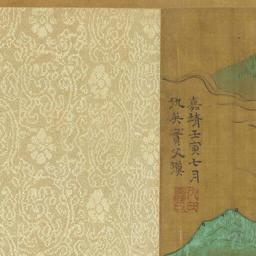 嘉靖壬寅七月
仇英實父製